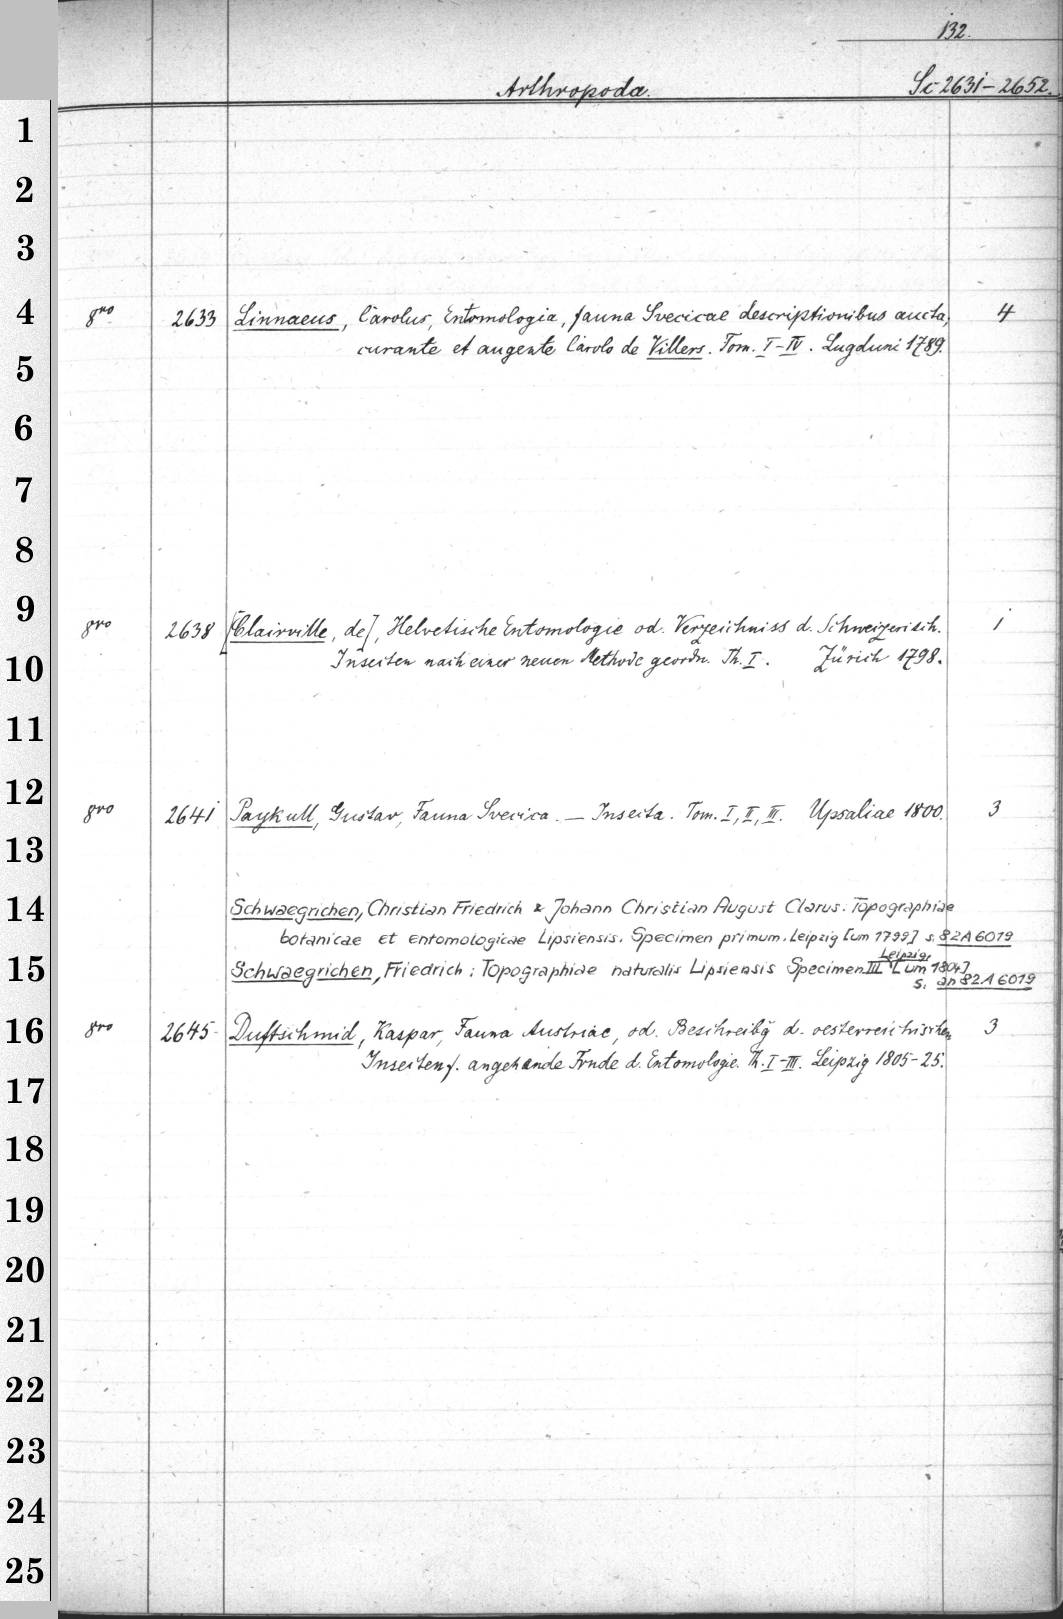 132.
Arthropoda. Sc 2631-2652.
1
2
3
4 8vo 2633 Linnaeus, Carolus, Entomologia, fauna Svecicae descriptionibus aucta, 4
curante et augente Carolo de Villers. Tom. I-IV. Lugduni 1789.
5
6
7
8
9 8vo 2638 [Clairville, de], Helvetische Entomologie od. Verzeichniss d. Schweizerisch. 1
10 Insecten nach einer neuen Methode geordn. Th. I. Zürich 1798.
11
12 8vo 2641 Paykull, Gustav, Fauna Svecica. — Insecta. Tom. I, II, III. Upsaliae 1800. 3
13
14 Schwaegrichen, Christian Friedrich & Johann Christian August Clarus: Topographiae
botanicae et entomologicae Lipsiensis. Specimen primum. Leipzig [um 1799] s. 82A6019
15 Schwaegrichen, Friedrich: Topographiae naturalis Lipsiensis Specimen III Leipzig, [um 1804]
s. an 82A6019
16 8vo 2645 Duftschmid, Kaspar, Fauna Austriae, od. Beschreibg d. oesterreichischen 3
Insecten f. angehende Frnde d. Entomologie. Th. I-III. Leipzig 1805-25.
17
18
19
20
21
22
23
24
25